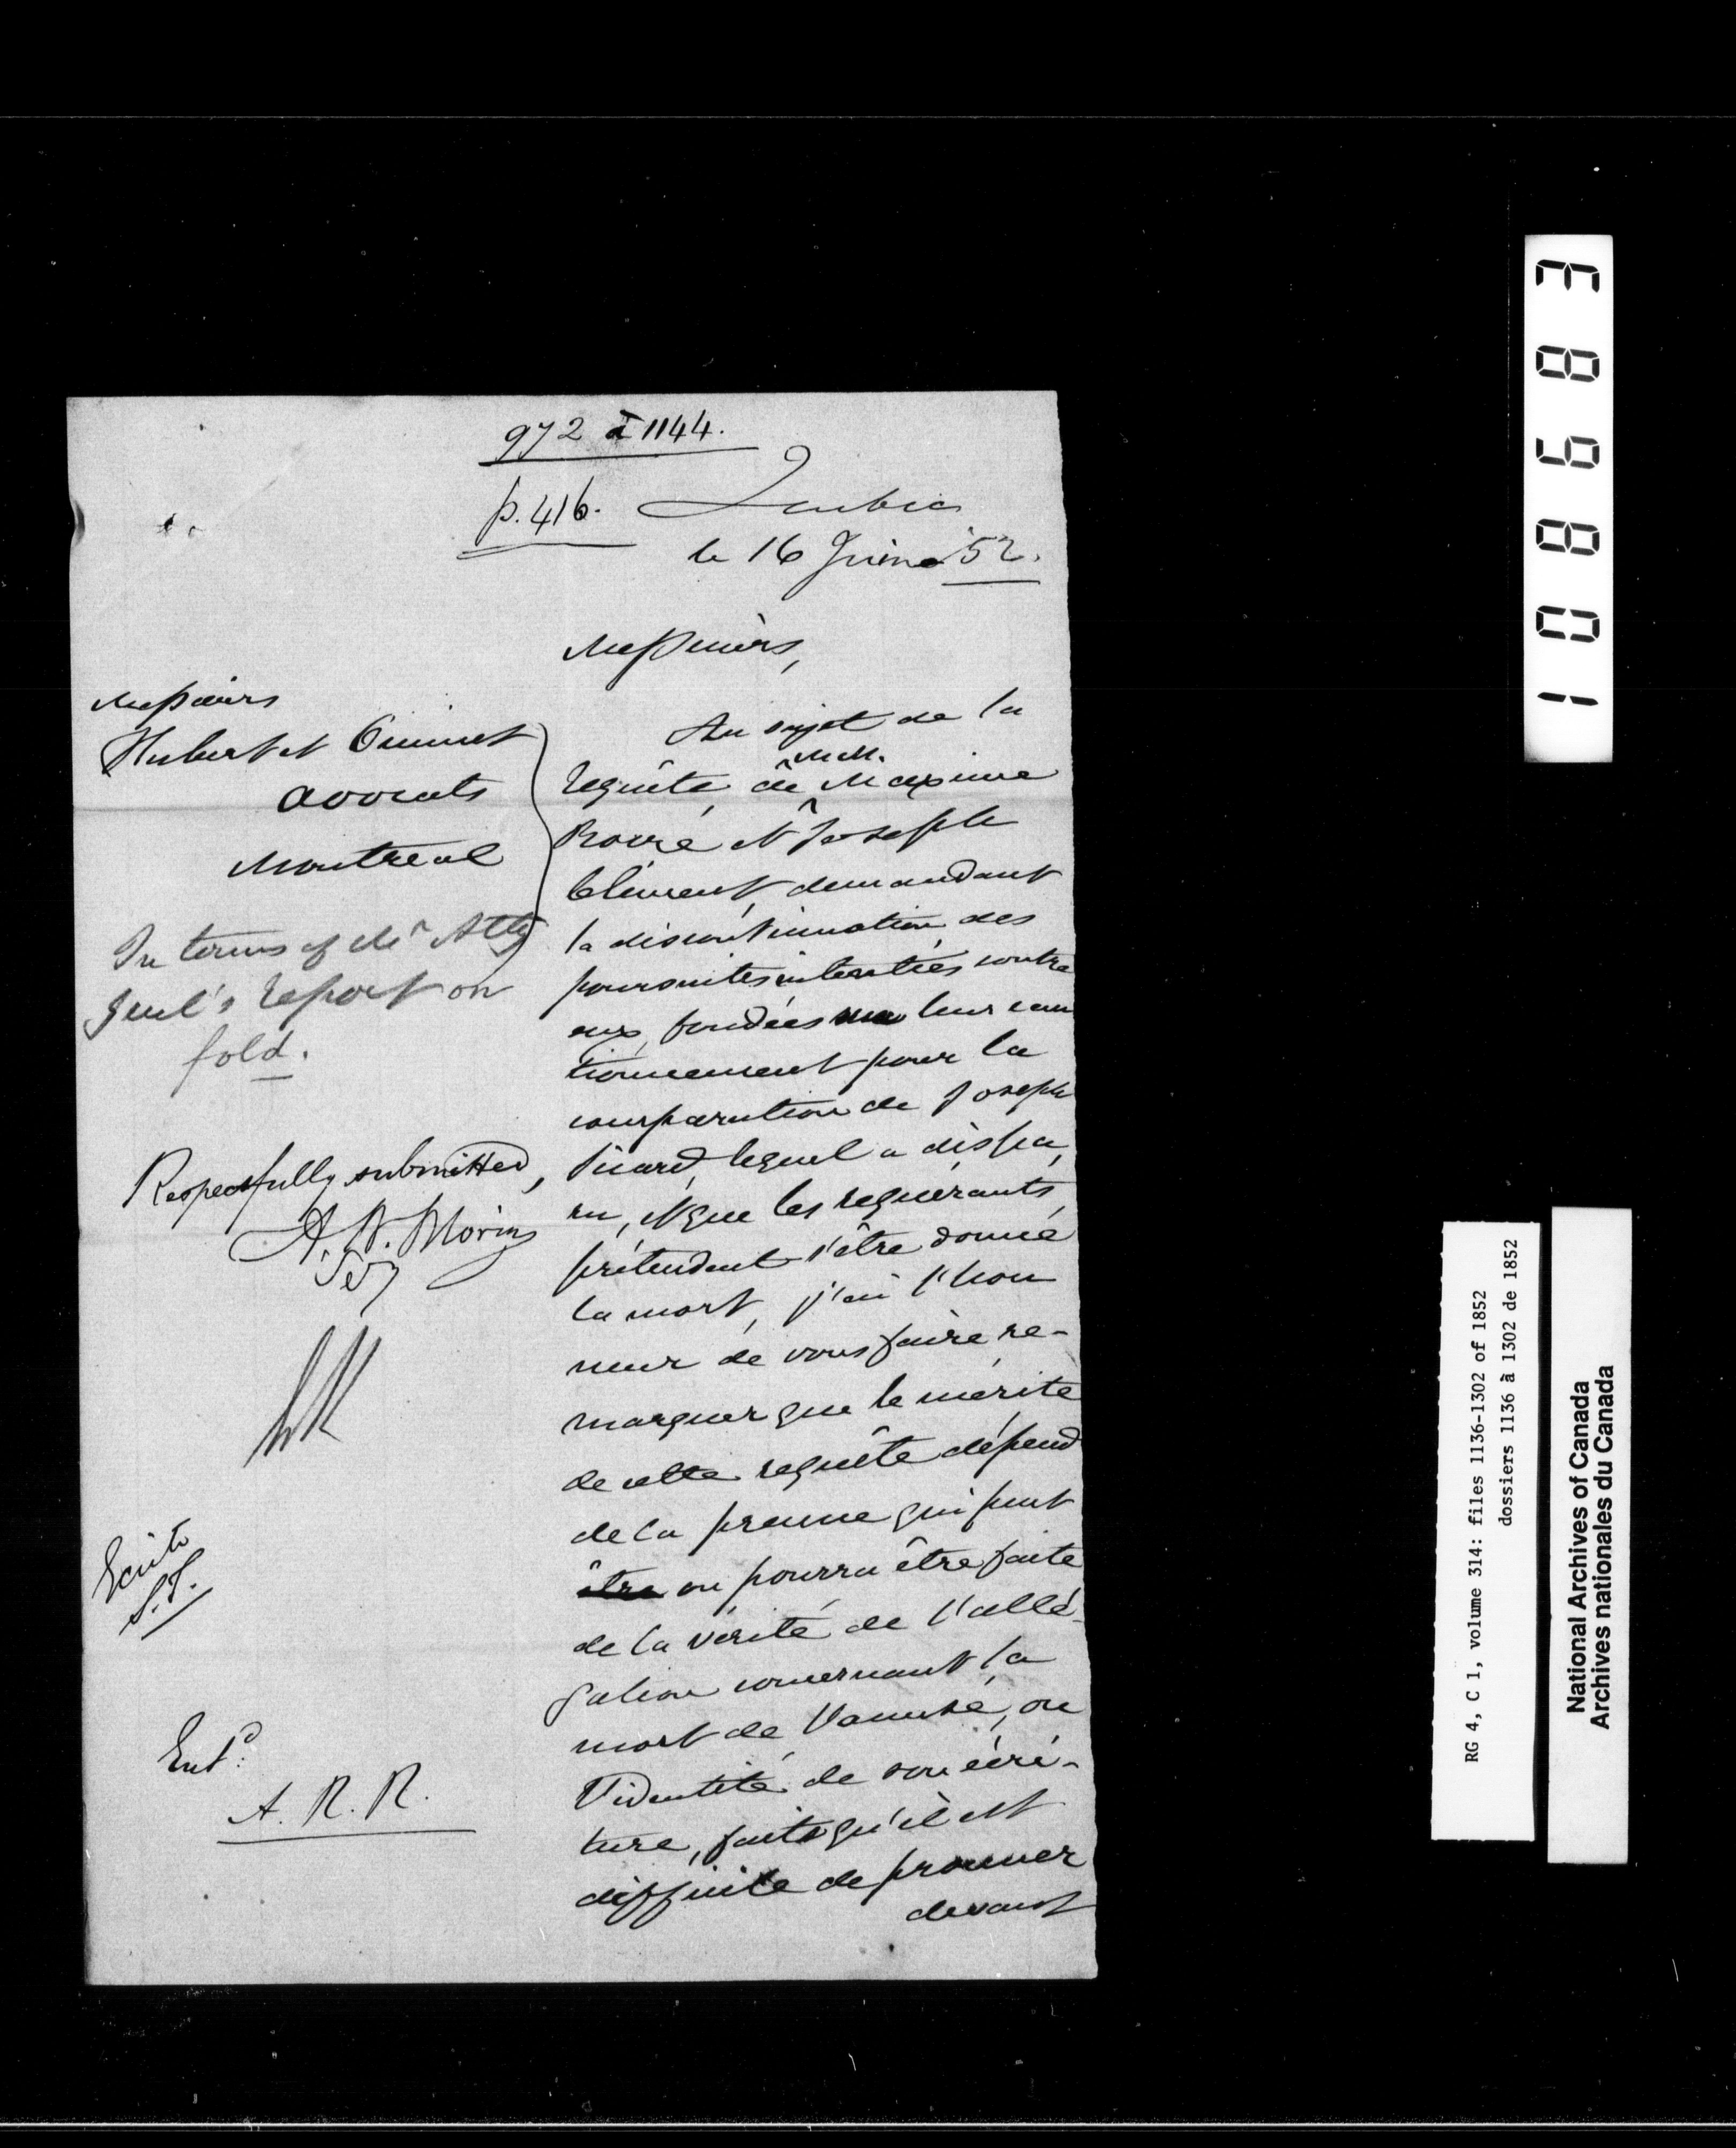 972 à 1144.
p. 416. Québec
le 16 Juin 52.
Messieurs,
Messieurs
Hubert et Ouimet
avocats
Montreal
In terms of Mr Atty
Genl's report on
fold.
Respectfully submitted,
A. N. Morin
Secy
Ecrite
S.T.
Entd:
A. R. R.
Au sujet de la
MM.
requête de Maxime
et Joseph
Clément, demandant
la discontinuation des
poursuites intentées contre
eux, fondées sur leur cau
tionnement pour la
comparution de Joseph
Picard, lequel a dispa,
ru, et que les requérants
prétendent s'être donné
la mort, j'ai l'hon
neur de vous faire re-
marquer que le mérite
de cette requête dépend
de la preuve qui peut
être ou pourra être faite
de la vérité de l'allé-
gation concernant la
mort de l'accusé, ou
l'identité de son écri-
ture, faits qu'il est
difficile de prouver
devant
108683
RG 4, C 1, volume 314: files 1136-1302 of 1852
dossiers 1136 à 1302 de 1852
National Archives of Canada
Archives nationales du Canada